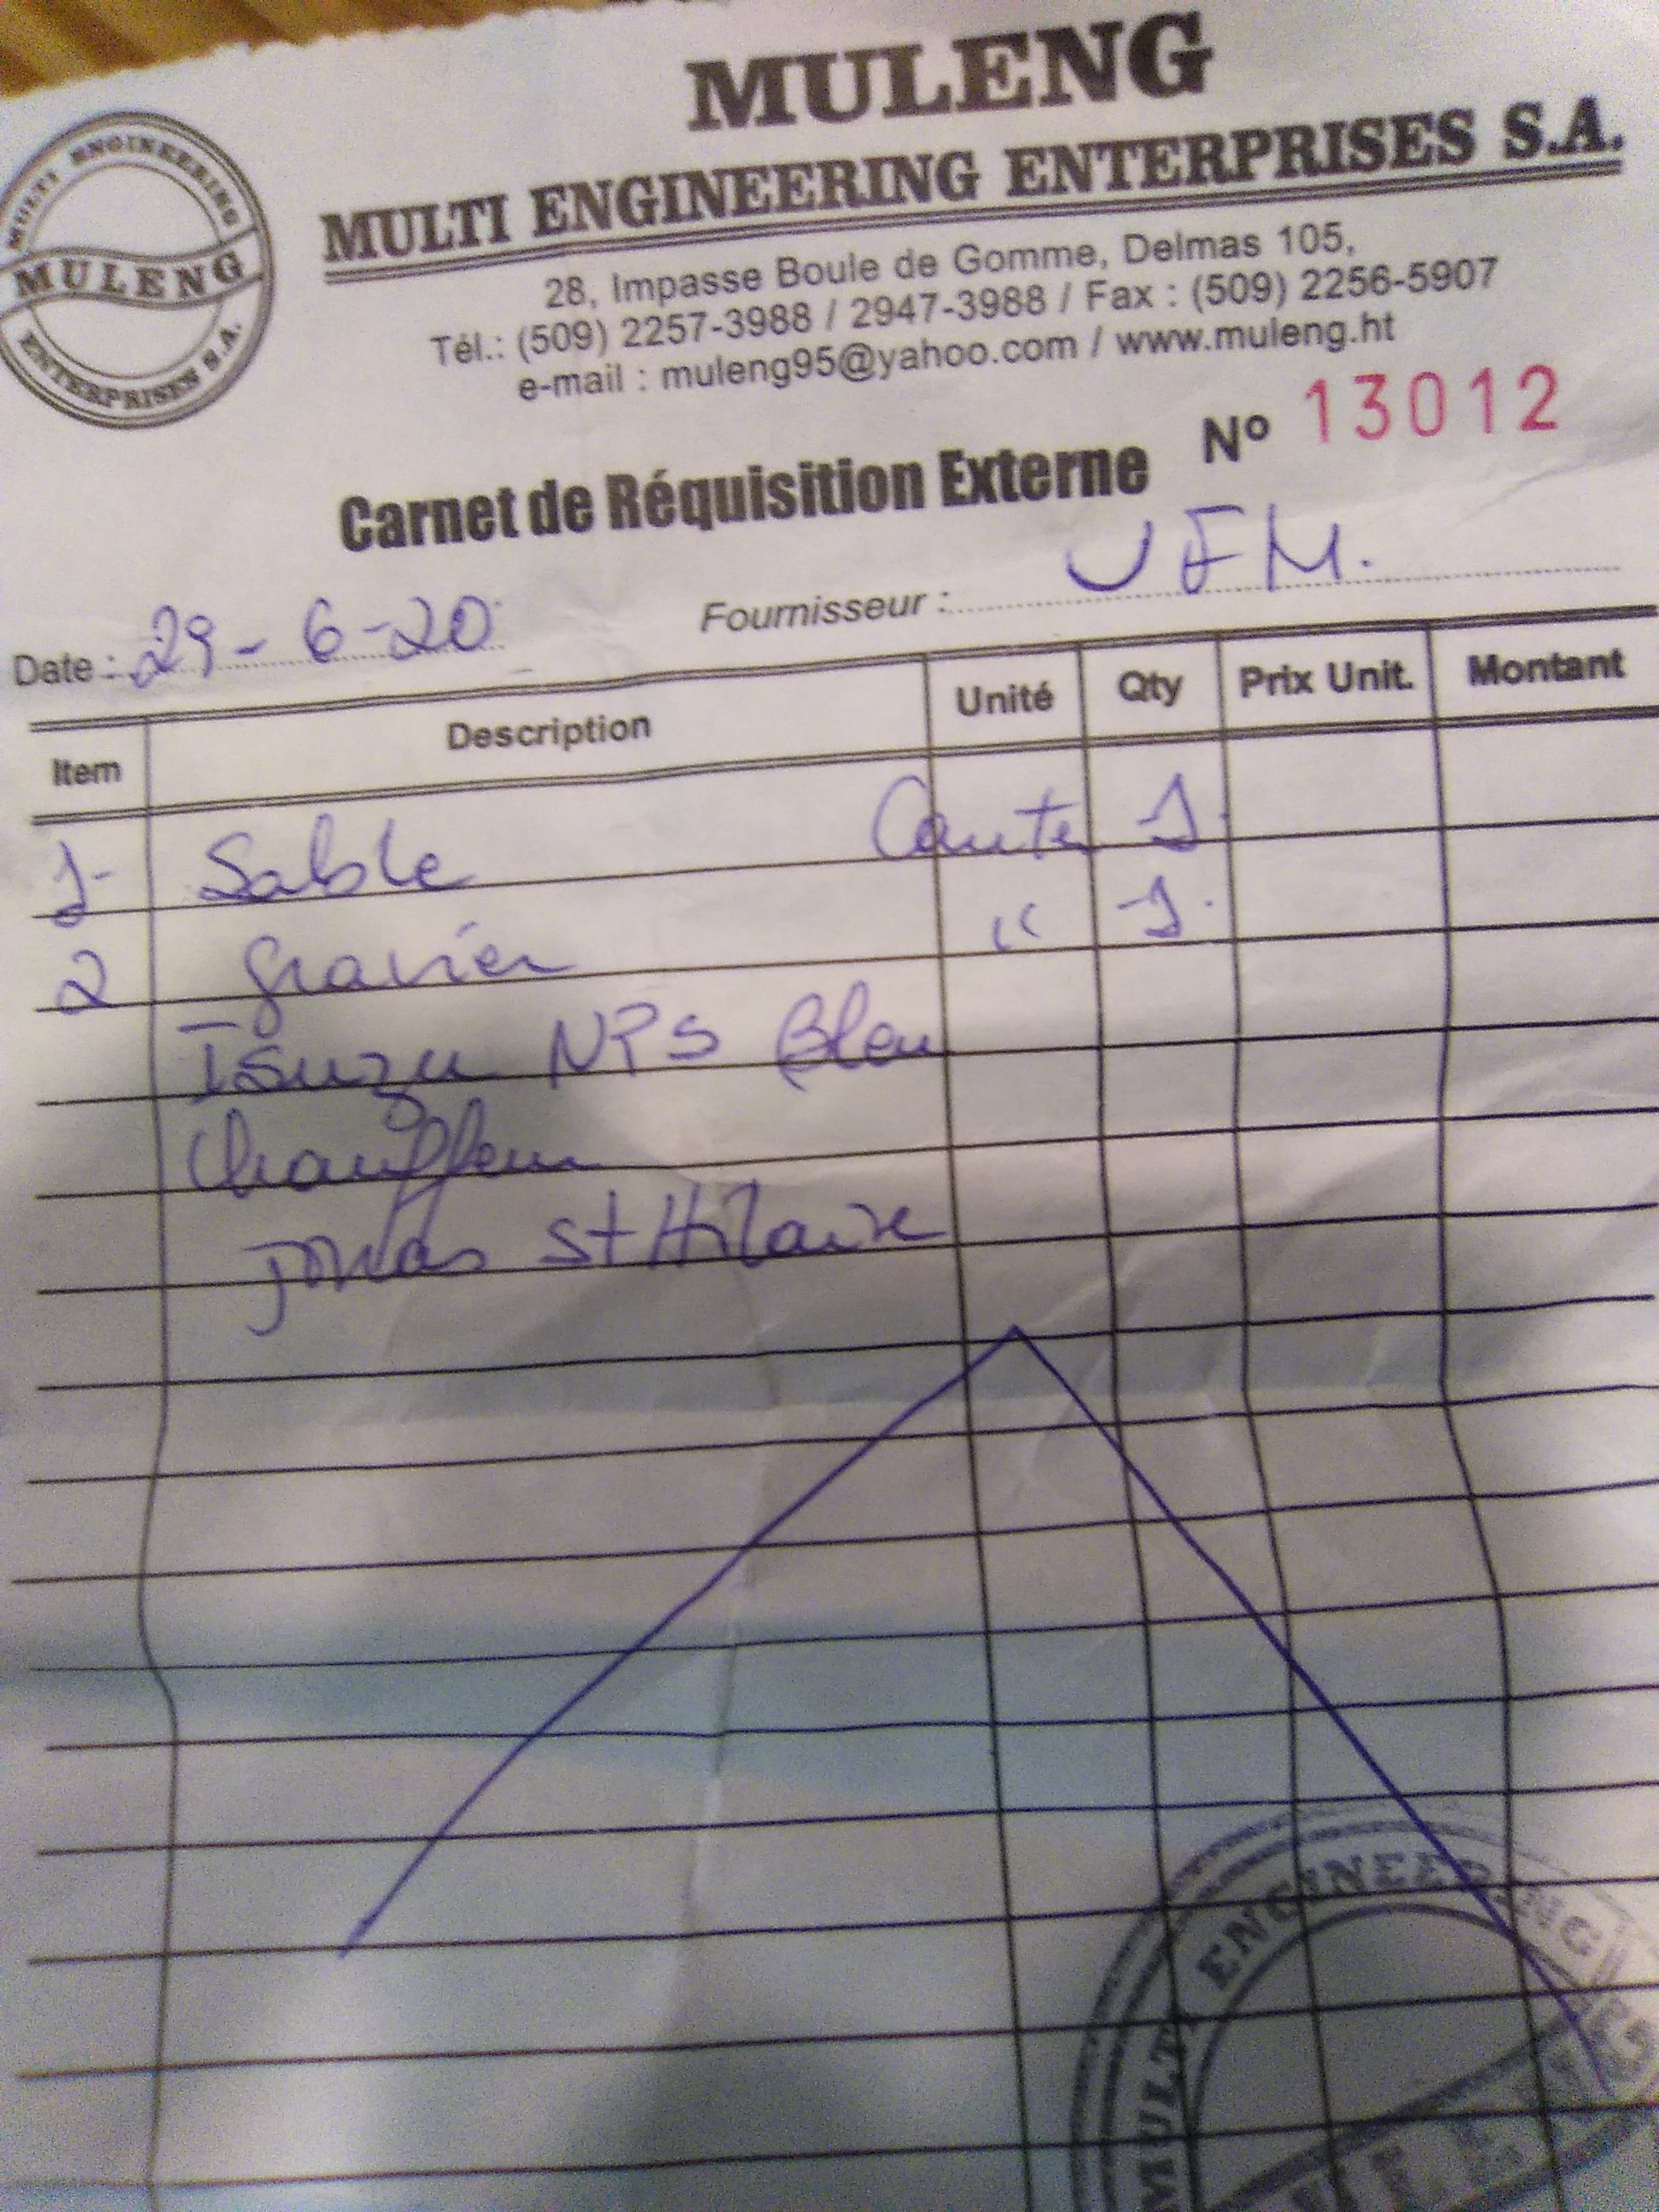 MULENG
MULTI ENGINEERING ENTERPRISES S.A.
MULTI ENGINEERING
MULENG
ENTERPRISES S.A.
28, Impasse Boule de Gomme, Delmas 105,
Tél.: (509) 2257-3988 / 2947-3988 / Fax : (509) 2256-5907
e-mail : muleng95@yahoo.com / www.muleng.ht
Carnet de Réquisition Externe Nº 13012
Date : 29-6-20 Fournisseur : UFM.
Item Description Unité Qty Prix Unit. Montant
1- Sable 1
2 gravier " 1
Isuzu Bleu
Chauffeur
Jonas St Hilaire
MULTI ENGINEERING